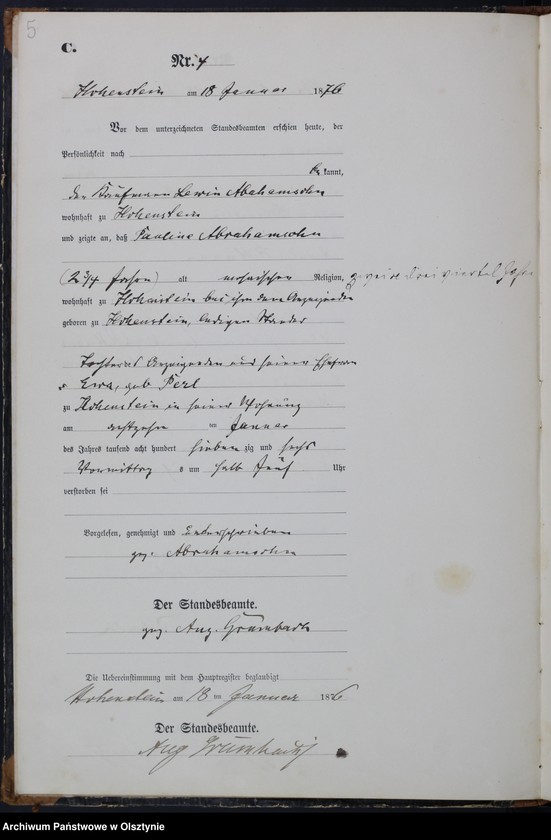 5
C.
Nr. 4
Hohenstein am 18 Januar 1876
Vor dem unterzeichneten Standesbeamten erschien heute, der
Persönlichkeit nach
bekannt,
der Kaufmann Lewin Abrahamsohn
wohnhaft zu Hohenstein
und zeigte an, daß Pauline Abrahamsohn
(2 3/4 Jahre) alt mosaischer Religion, zwei drei viertel Jahre
wohnhaft zu Hohenstein bei ihm dem Anzeigenden
geboren zu Hohenstein, ledigen Standes
Tochter des Anzeigenden und seiner Ehefrau
Ewa, geb Perl
zu Hohenstein in seiner Wohnung
am achtzehn ten Januar
des Jahres tausend acht hundert sieben zig und sechs
Vormittag s um halb fünf Uhr
verstorben sei
Vorgelesen, genehmigt und unterschrieben
gez. Abrahamsohn
Der Standesbeamte.
gez. Aug. Grumbach
Die Uebereinstimmung mit dem Hauptregister beglaubigt
Hohenstein am 18 ten Januar 1876
Der Standesbeamte.
Aug Grumbach
Archiwum Państwowe w Olsztynie